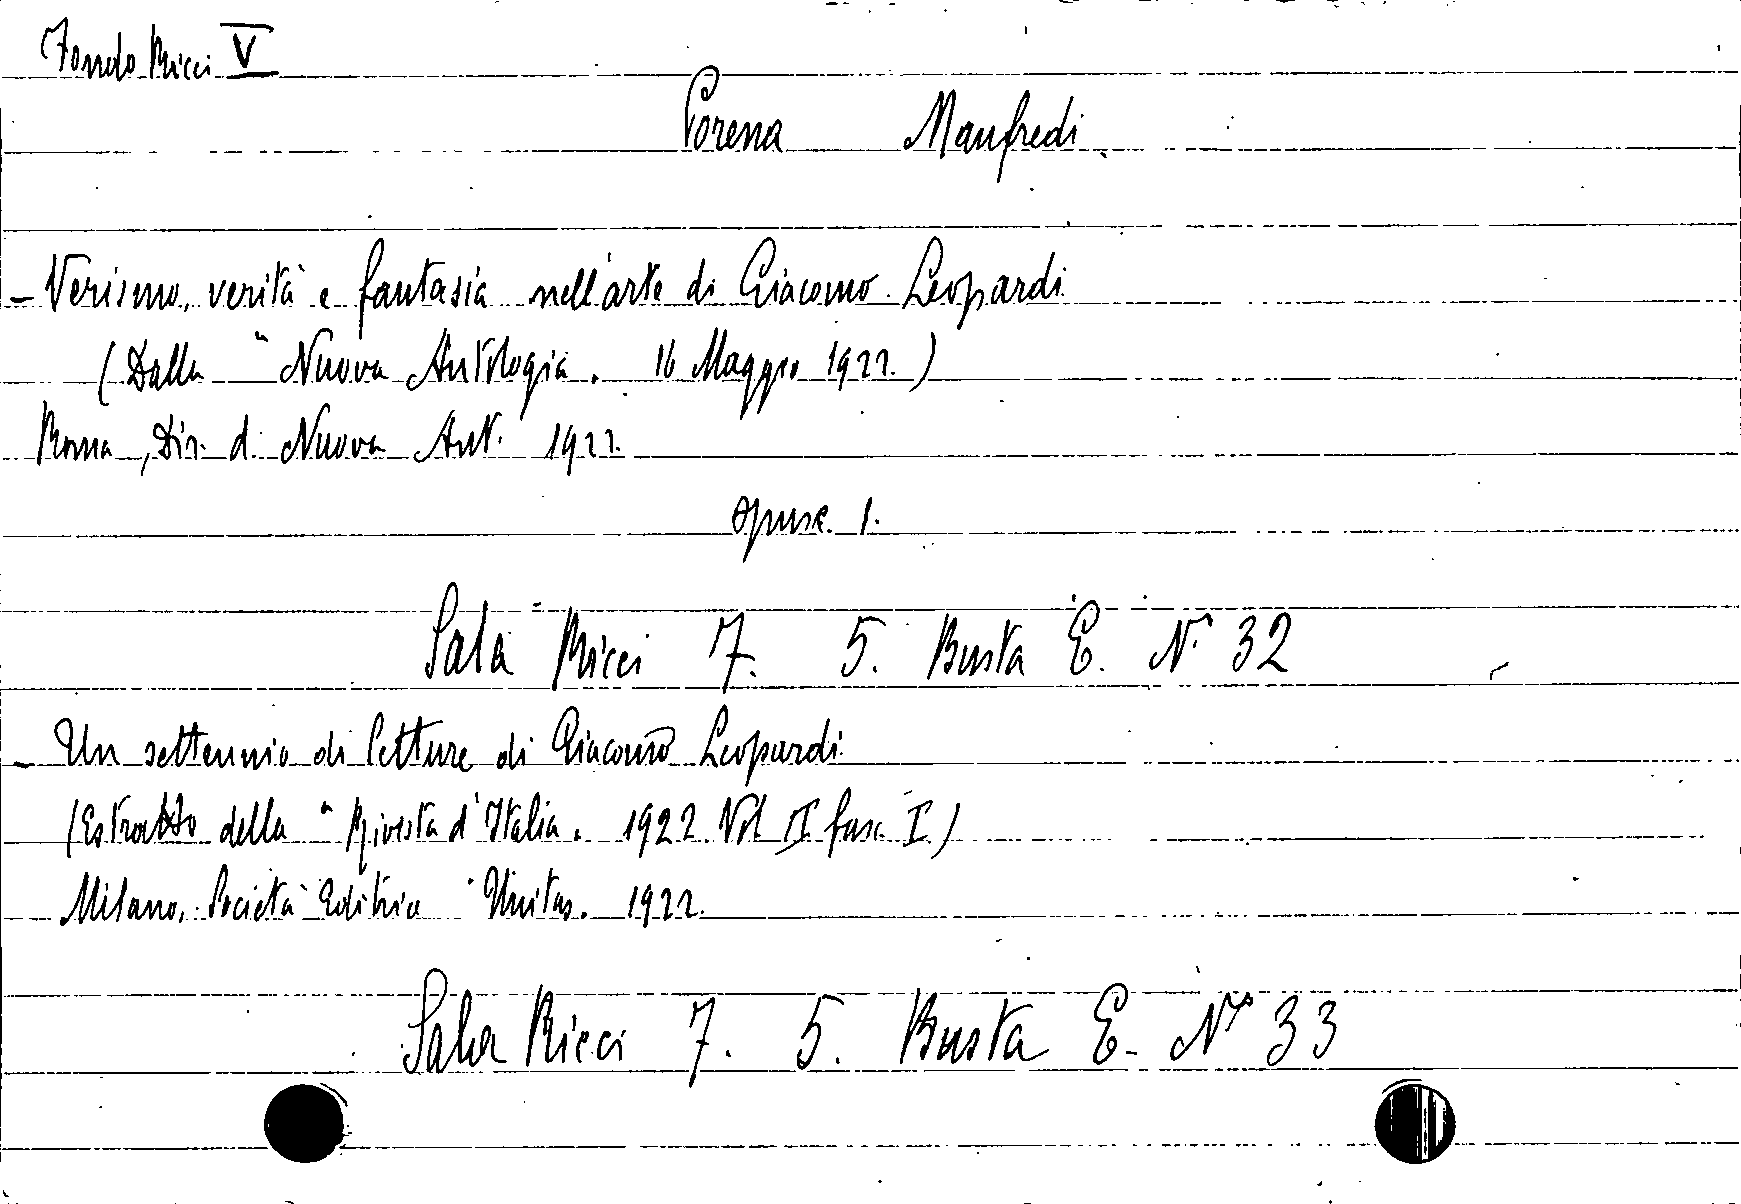 Fondo Ricci V
Porena Manfredi
- Verismo, verità e fantasia nell'arte di Giacomo Leopardi
(Dalla " Nuova Antologia. 16 Maggio 1922.)
Roma, Dir. d. Nuova Ant. 1922.
opusc. 1.
Sala Ricci 7. 5. Busta E. N. 32
- Un settennio di letture di Giacomo Leopardi.
(Estratto della " Rivista d'Italia. 1922 Vol II fasc. I.)
Milano, Società Editrice Unitas. 1922.
Sala Ricci 7. 5. Busta E. N° 33